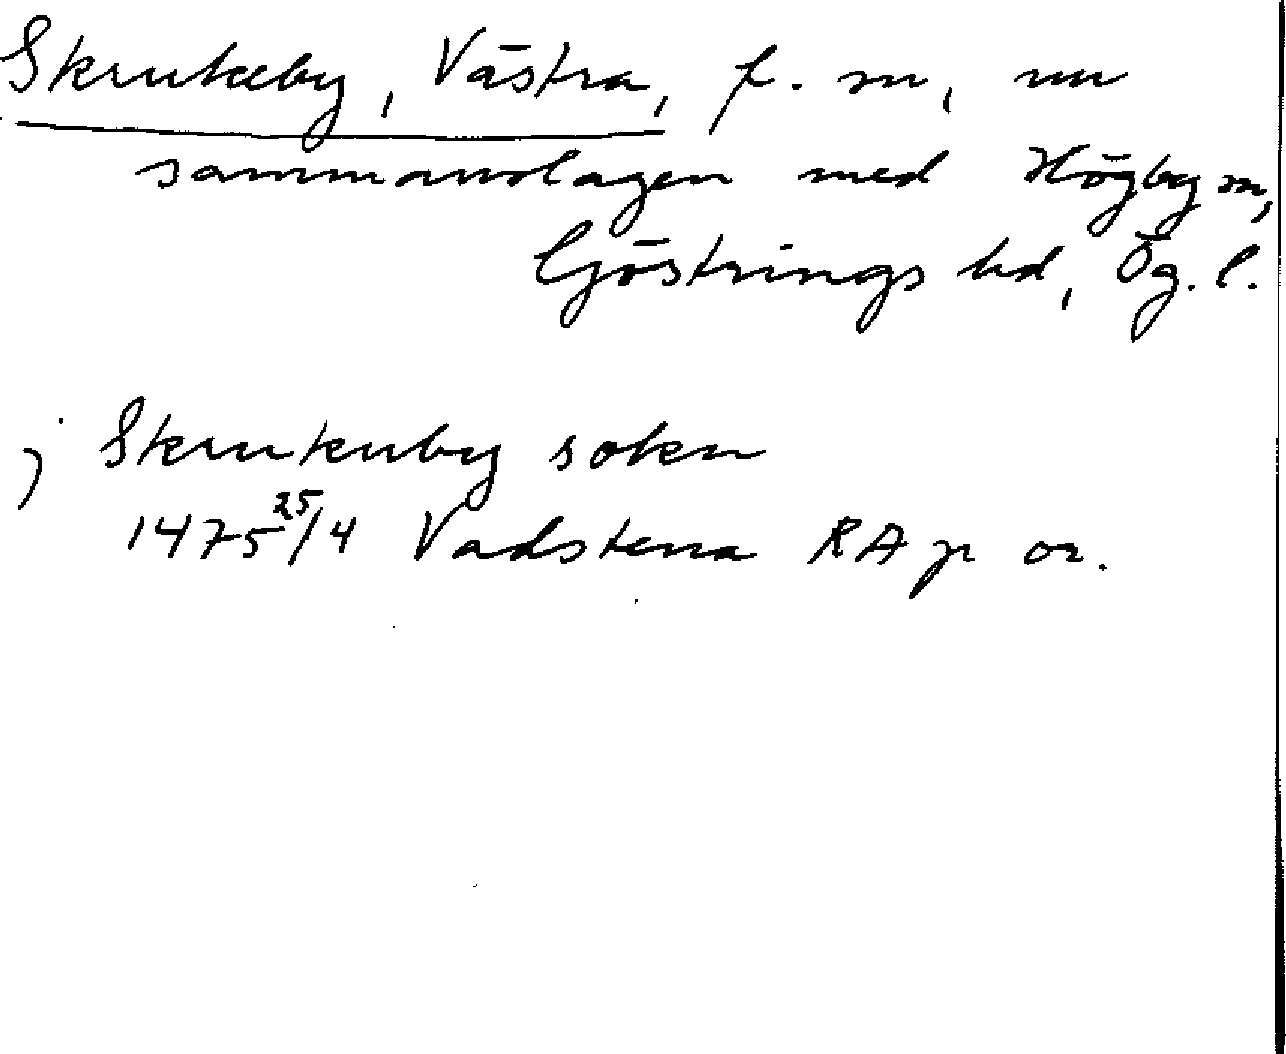 Skrukeby, Västra, f. sn, nu
sammanslagen med Högby sn,
Göstrings hd, Ög. l.
j Skrukuby sokn
1475 25/4 Vadstena RA p or.